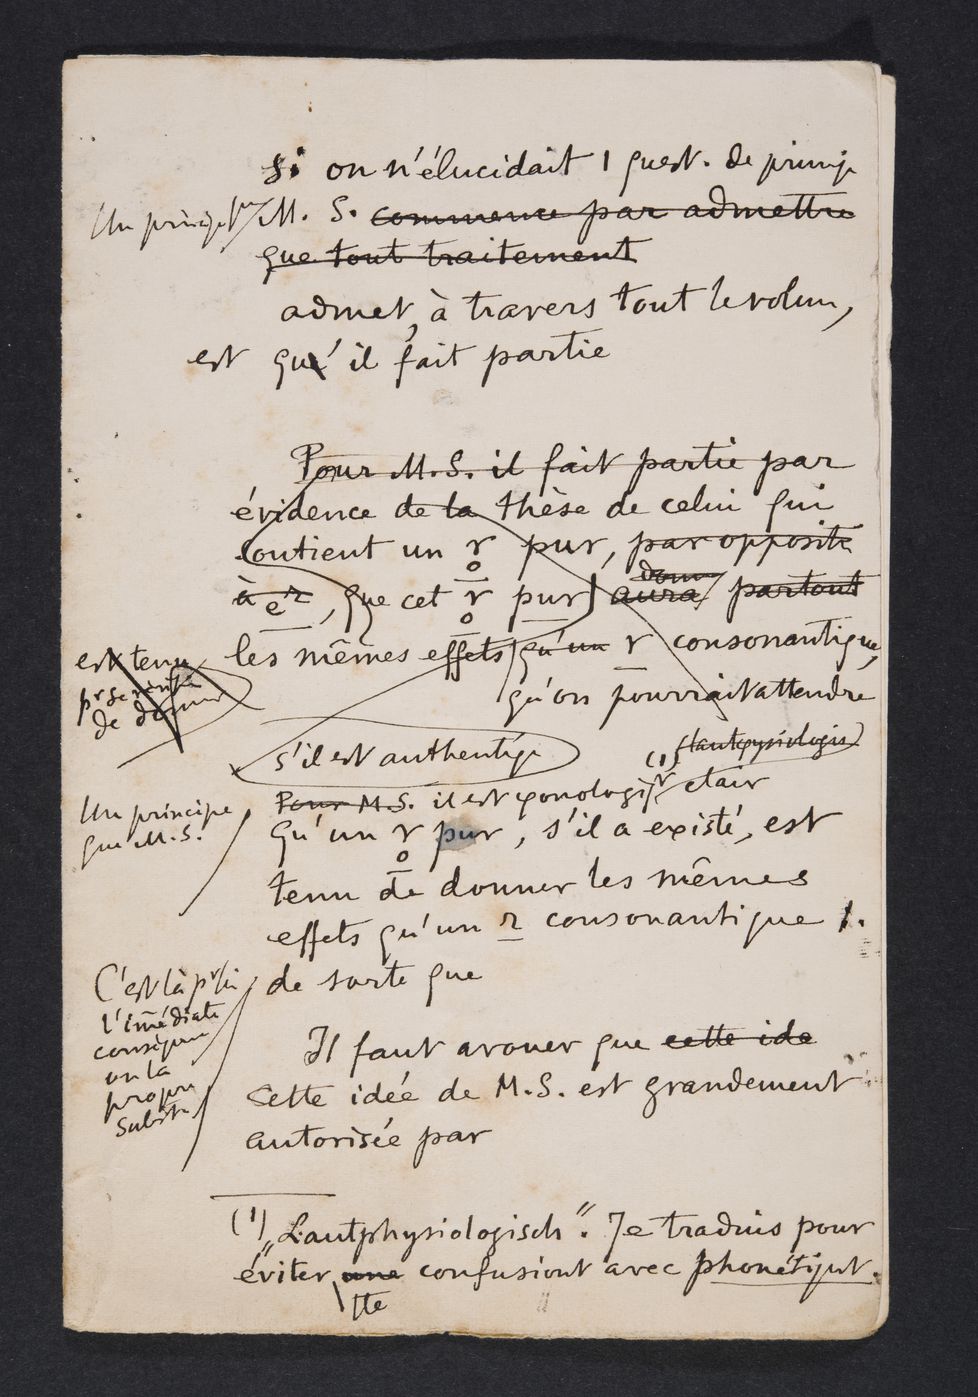 si on n'élucidait 1 quest. de princip
Un principe que M. S. commence par admettre
que tout traitement
admet, à travers tout le volum,
est qu'il fait partie
Pour M.S. il fait partie par
évidence de la thèse de celui qui
soutient un r̥ pur, par opposite
à er, que cet r̥ pur) donn aura partout
les mêmes effets qu'un r consonantique,
est tenu
pr se
de donner
qu'on pourrait attendre
s'il est authentiq
(1) (lautpysiologis)
Pour M.S. il est phonologiqt clair
Un principe
que M.S.
qu'un r̥ pur, s'il a existé, est
tenu de donner les mêmes
effets qu'un r consonantique 1.
de sorte que
C'est là pr lui
l'imédiate
conséquen
ou la
propre
Subst.
Il faut avouer que cette ide
Cette idée de M.S. est grandement
autorisée par
(1) „Lautphysiologisch". Je traduis pour
éviter une tte confusiont avec phonétiqt.